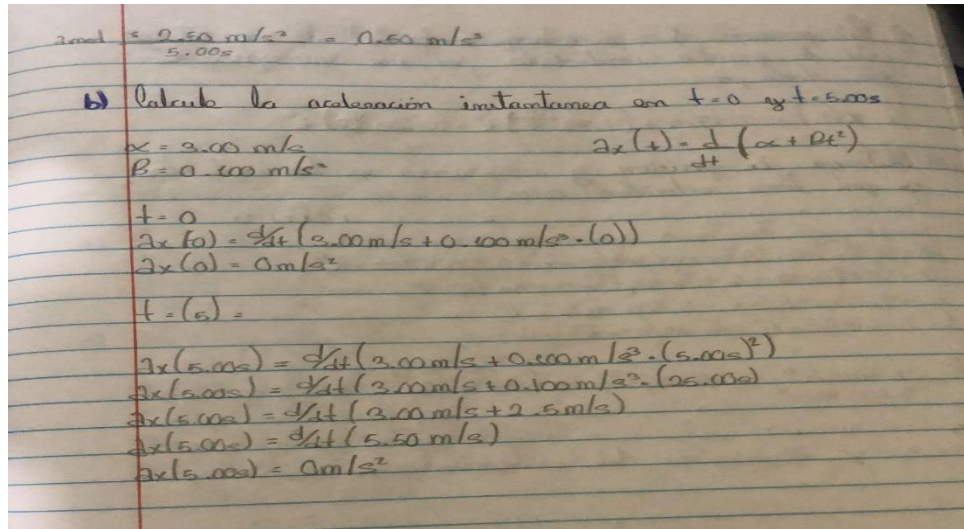 amed = 2.50 m/s² / 5.00s = 0.50 m/s³
b) Calcule la aceleración instantanea en t=0 y t=5.00s
α = 3.00 m/s
β = 0.100 m/s³
ax(t) = d/dt (α + βt²)
t = 0
ax(0) = d/dt (3.00 m/s + 0.100 m/s³ · (0))
ax(0) = 0m/s²
t = (5) =
ax(5.00s) = d/dt (3.00 m/s + 0.100 m/s³ · (5.00s)²)
ax(5.00s) = d/dt (3.00 m/s + 0.100 m/s³ · (25.00s)
ax(5.00s) = d/dt (3.00 m/s + 2.5 m/s)
ax(5.00s) = d/dt (5.50 m/s)
ax(5.00s) = 0m/s²